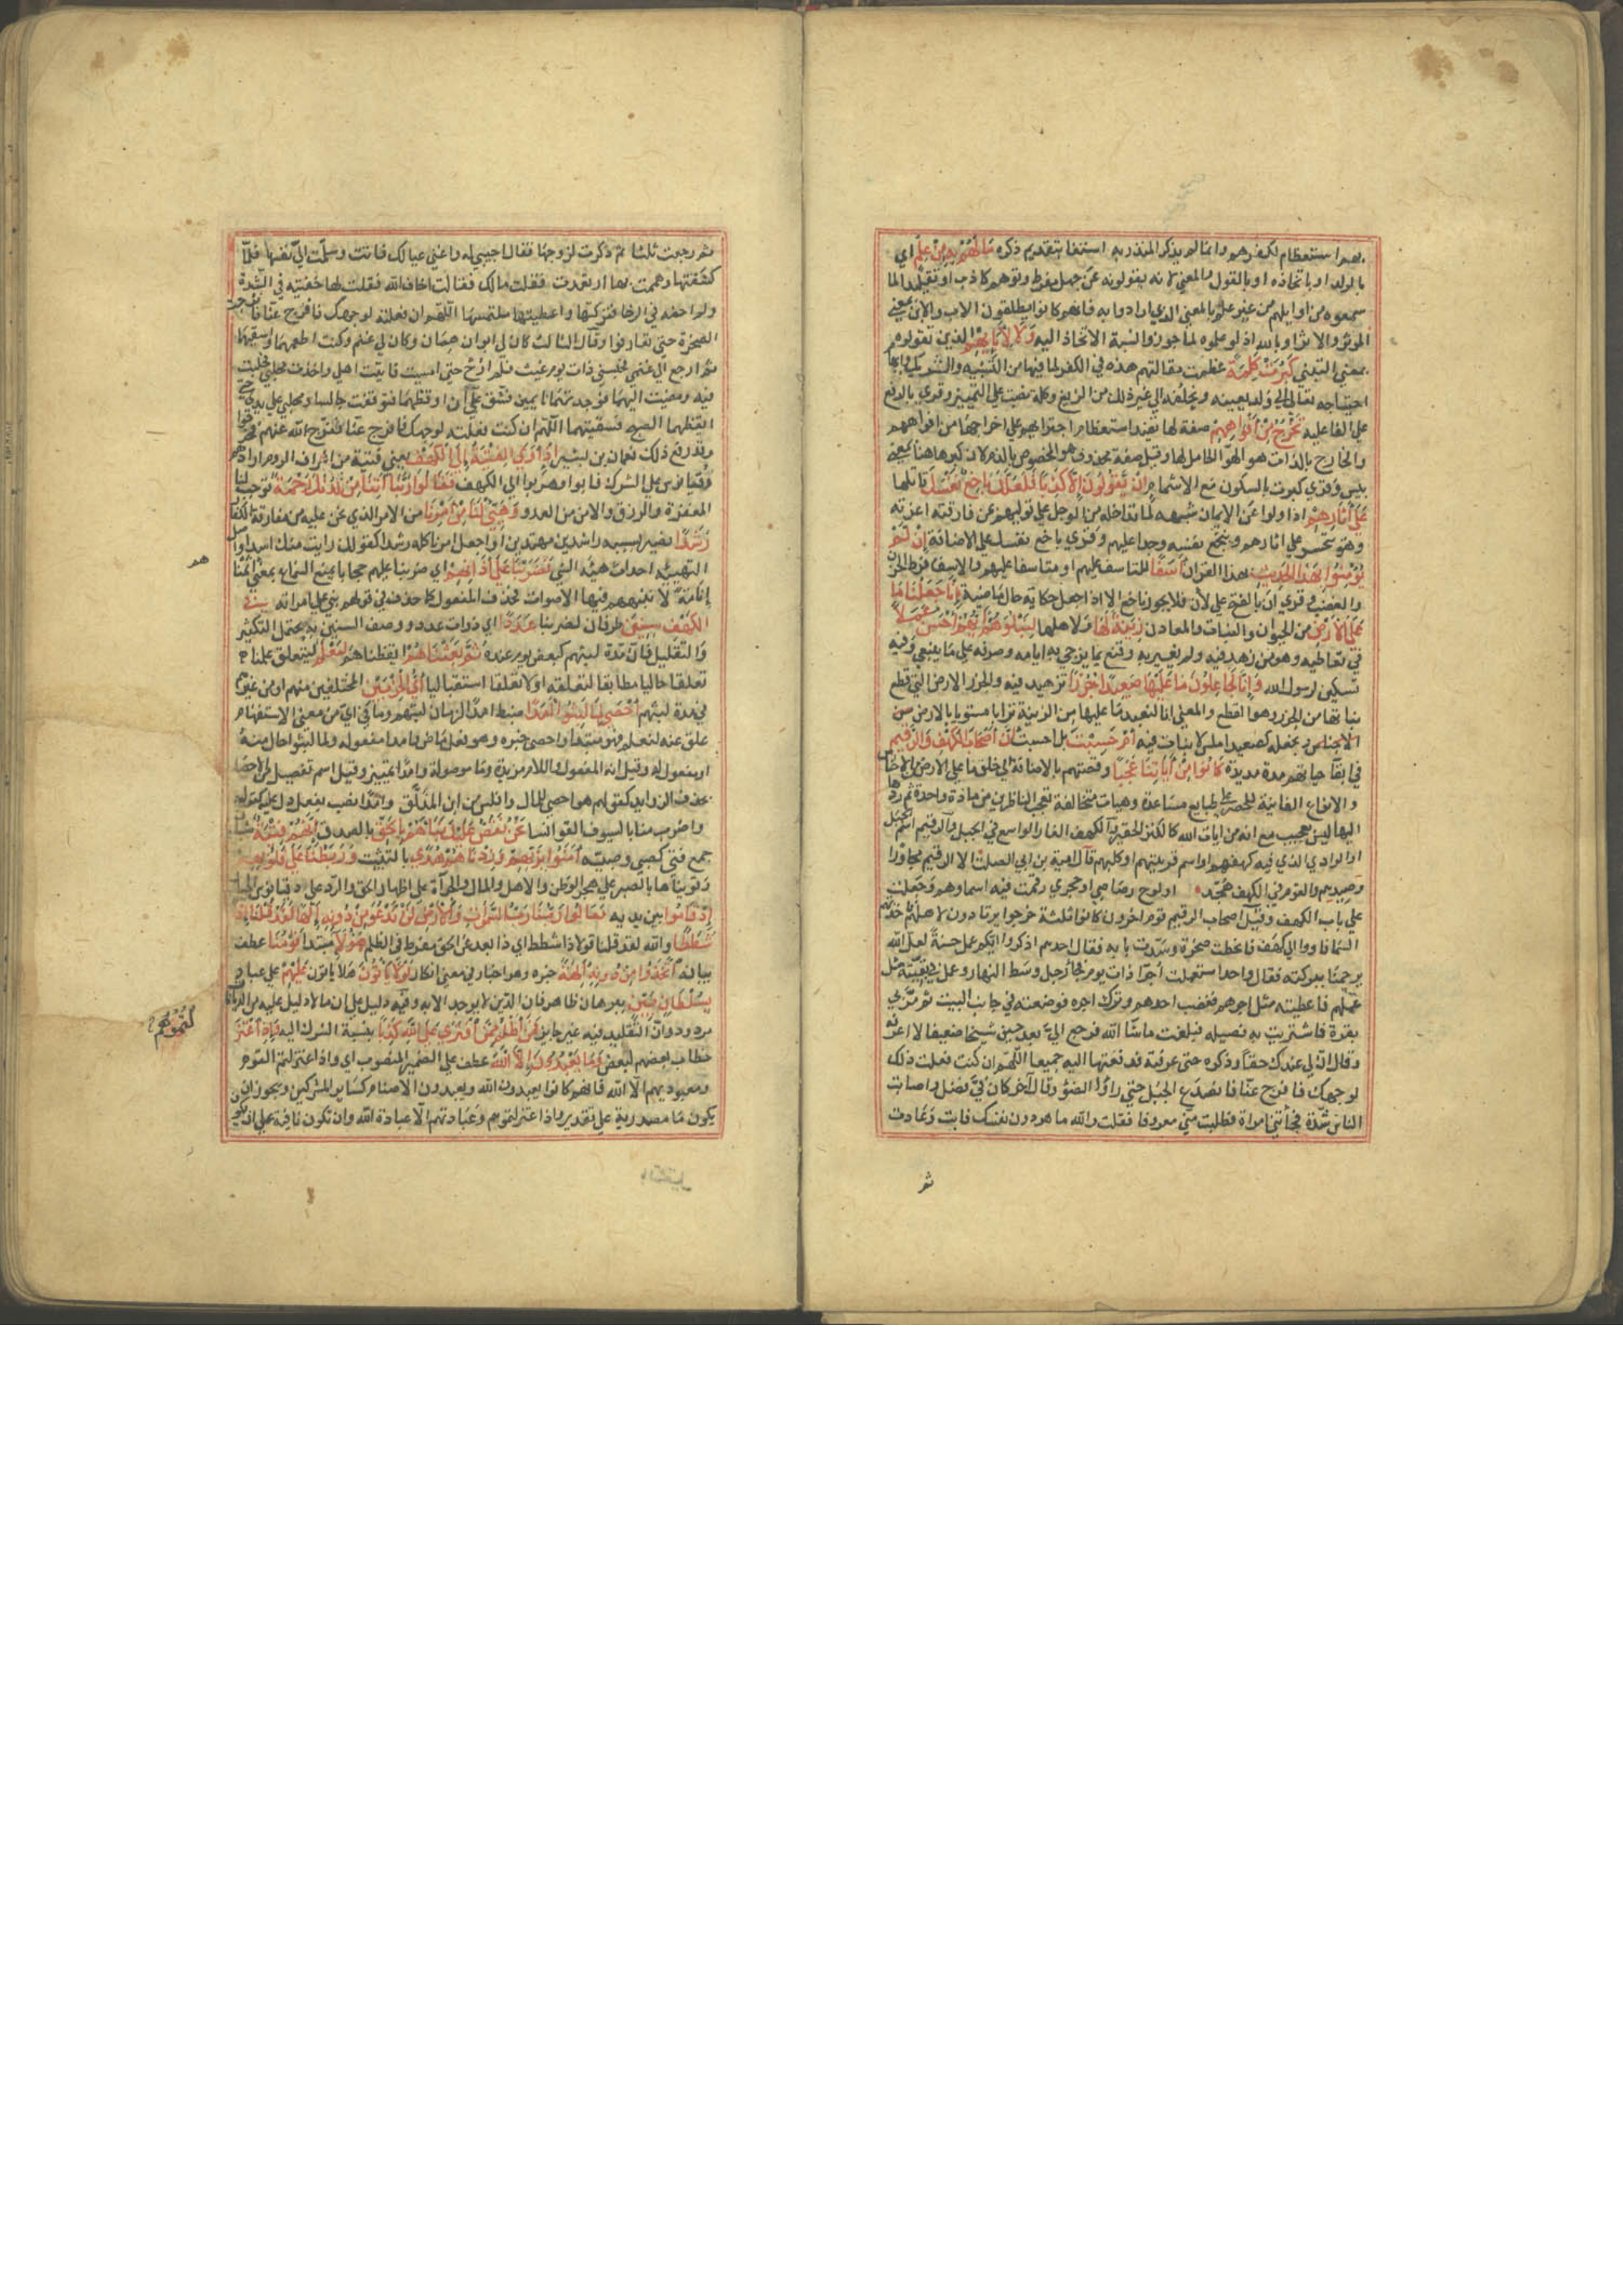 بهم استعظاما لكفرهم وانما لم يذكر المنذر به استغناء بتقديم ذكره مَا لَهُمْ بِهِ مِنْ عِلْمٍ اي
بالولد او باتخاذه او بالقول والمعني لانه يقولونه عن جهل مفرط وتوهم كاذب او تقليد لما
سمعوه من اوايلهم من غير علم بالمعني الذي ارادوا به فانهم كانوا يطلقون الاب والابن بمعني
الموثر والاثر او بالله اذ لو علموه لما جوزوا نسبة الاتخاذ اليه وَلَا لِآبَائِهِمْ الذين تقولوه
بمعني التبني كَبُرَتْ كَلِمَةً عظمت مقالتهم هذه في الكفر لما فيها من التشبيه والتشريك وايهام
احتياجه تعالي الي ولد يعينه ويخلفه الي غير ذلك من الزيغ وكلمة نصب علي التمييز وقري بالرفع
علي الفاعلية تَخْرُجُ مِنْ أَفْوَاهِهِمْ صفة لها تفيد استعظام اجترايهم علي اخراجها من افواههم
والخارج بالذات هو الهوا الحامل لها وقيل صفة محذوف هو المخصوص بالذم لان كبر هاهنا بمعني
بيس وقري كبرت بالسكون مع الاشمام إِنْ يَقُولُونَ إِلَّا كَذِبًا فَلَعَلَّكَ بَاخِعٌ نَفْسَكَ قاتلها
عَلَى آثَارِهِمْ اذا ولوا عن الايمان شبهه لما تداخله من الوجد علي توليهم بمن فارقته اعزته
وهو يتحسر علي اثارهم ويبخع نفسه وجدا عليهم وقري باخع نفسك علي الاضافة إِنْ لَمْ
يُؤْمِنُوا بِهَذَا الْحَدِيثِ بهذا القران أَسَفًا للتاسف عليهم او متاسفا عليهم والاسف فرط الحزن
والغضب وقري ان بالفتح علي لان فلا يجوز باخع الا اذا جعل حكاية حال ماضية إِنَّا جَعَلْنَا مَا
عَلَى الْأَرْضِ من الحيوان والنبات والمعادن زِينَةً لَهَا ولاهلها لِنَبْلُوَهُمْ أَيُّهُمْ أَحْسَنُ عَمَلًا
في تعاطيه وهو من زهد فيه ولم يغتر به وقنع بما يزجي به ايامه وصرفه علي ما ينبغي وفيه
تسكين لرسول الله وَإِنَّا لَجَاعِلُونَ مَا عَلَيْهَا صَعِيدًا جُرُزًا تزهيد فيه والجرز الارض التي قطع
نباتها من الجرز وهو القطع والمعني انا لنعيد ما عليها من الزينة ترابا مستويا بالارض من
الاجناس ونجعله كصعيد املس لا نبات فيه أَمْ حَسِبْتَ بل احسبت أَنَّ أَصْحَابَ الْكَهْفِ وَالرَّقِيمِ
في ابقا حياتهم مدة مديدة كَانُوا مِنْ آيَاتِنَا عَجَبًا وقصتهم بالاضافة الي خلق ما علي الارض من الاجناس
والانواع الفايتة للحصر علي طبايع متباعدة وهيات متخالفة تعجب الناظرين من مادة واحدة ثم ردها
اليها ليس بعجيب مع انه من ايات الله كالنزر الحقير والكهف الغار الواسع في الجبل والرقيم اسم الجبل
او الوادي الذي فيه كهفهم او اسم قريتهم او كلبهم قال امية بن ابي الصلت الا الرقيم مجاورا
وصيدهم والقوم في الكهف همد او لوح رصاصي او حجري رقمت فيه اسماوهم وجعلت
علي باب الكهف وقيل اصحاب الرقيم قوم اخرون كانوا ثلثة خرجوا يرتادون لاهلهم فاخذتهم
السما فاووا الي كهف فانحطت صخرة وسدت بابه فقال احدهم اذكروا ايكم عمل حسنة لعل الله
يرحمنا ببركته فقال واحد استعملت اجرا ذات يوم فجا رجل وسط النهار وعمل في بقيته مثل
عملهم فاعطيته مثل اجرهم فغضب احدهم وترك اجره فوضعته في جانب البيت ثم مر بي
بقرة فاشتريت به فصيله فبلغت ما شا الله فرجع الي بعد حين شيخا ضعيفا لا اعرفه
وقال ان لي عندك حقا وذكره حتي عرفته فدفعتها اليه جميعا اللهم ان كنت فعلت ذلك
لوجهك فافرج عنا فانصدع الجبل حتي راوا الضو وقال آخر كان في فضل واصابت
الناس شدة فجاتني امراة فطلبت مني معروفا فقلت والله ما هو دون نفسك فابت وعادت
ثم
ثم رجعت ثلثا ثم ذكرت لزوجها فقال اجيبي له واغني عيالك فاتت وسلمت الي نفسها فلما
كشفتها وهممت بها ارتعدت فقلت مالك فقالت اخاف الله فقلت لها خفتيه في الشدة
ولم اخفه في الرخا فتركتها واعطيتها ملتمسها اللهم ان فعلته لوجهك فافرج عنا فانفرجت
الصخرة حتي تعارفوا وقال الثالث كان لي ابوان همان وكان لي غنم وكنت اطعمهما واسقيهما
ثم ارجع الي غنمي فحبسني ذات يوم غيث فلم ارح حتي امسيت فاتيت اهلي واخذت محلبي فحلبت
فيه ومضيت اليهما فوجدتهما نايمين فشق علي ان اوقظهما فتوقفت جالسا ومحلبي علي يدي حتي
ايقظهما الصبح فسقيتهما اللهم ان كنت فعلته لوجهك فافرج عنا ففرج الله عنهم فخرجوا
وقد رفع ذلك نعمان بن بشير إِذْ أَوَى الْفِتْيَةُ إِلَى الْكَهْفِ يعني فتية من اشراف الروم ارادهم
دقيانوس علي الشرك فابوا وهربوا الي الكهف فَقَالُوا رَبَّنَا آتِنَا مِنْ لَدُنْكَ رَحْمَةً توجب لنا
المغفرة والرزق والامن من العدو وَهَيِّئْ لَنَا مِنْ أَمْرِنَا من الامر الذي نحن عليه من مفارقة الكفار
رَشَدًا نصير بسببه راشدين مهتدين او اجعل امرنا كله رشدا كقولك رايت منك اسدا واصل
التهيئة احداث هيئة الشي فَضَرَبْنَا عَلَى آذَانِهِمْ اي ضربنا عليهم حجابا يمنع السماع بمعني انمناهم
إنامة لا تنبههم فيها الاصوات فحذف المفعول كما حذف في قولهم بني علي امراته فِي
الْكَهْفِ سِنِينَ ظرفان لضربنا عَدَدًا اي ذوات عدد ووصف السنين به يحتمل التكثير
والتقليل فان مدة لبثهم كبعض يوم عنده ثُمَّ بَعَثْنَاهُمْ ايقظناهم لِنَعْلَمَ ليتعلق علمنا
تعلقا حاليا مطابقا لتعلقه اولا تعلقا استقباليا أَيُّ الْحِزْبَيْنِ المختلفين منهم او من غيرهم
في مدة لبثهم أَحْصَى لِمَا لَبِثُوا أَمَدًا ضبط امدا لزمان لبثهم وما في اي من معني الاستفهام
علق عنه لنعلم فهو مبتدا واحصي خبره وهو فعل ماض وامدا مفعوله ولما لبثوا حال منه
او مفعول له وقيل انه المفعول واللام مزيدة وما موصولة وامدا تمييز وقيل اسم تفضيل من الاحصا
بحذف الزوايد كقولهم هو احصي للمال وافلس من ابن المذلق وامدا نصب بفعل دل عليه كقوله
واضرب منا بالسيوف القوانسا نَحْنُ نَقُصُّ عَلَيْكَ نَبَأَهُمْ بِالْحَقِّ بالصدق إِنَّهُمْ فِتْيَةٌ شبان
جمع فتي كصبي وصبية آمَنُوا بِرَبِّهِمْ وَزِدْنَاهُمْ هُدًى بالتثبيت وَرَبَطْنَا عَلَى قُلُوبِهِمْ
وقويناها بالصبر علي هجر الوطن والاهل والمال والجراة علي اظهار الحق والرد علي دقيانوس الجبار
إِذْ قَامُوا بين يديه فَقَالُوا رَبُّنَا رَبُّ السَّمَوَاتِ وَالْأَرْضِ لَنْ نَدْعُوَ مِنْ دُونِهِ إِلَهًا لَقَدْ قُلْنَا إِذًا
شَطَطًا والله لقد قلنا قولا ذا شطط اي ذا بعد عن الحق مفرط في الظلم هَؤُلَاءِ مبتدا قَوْمُنَا عطف
بيان له اتَّخَذُوا مِنْ دُونِهِ آلِهَةً خبره وهو اخبار في معني انكار لَوْلَا يَأْتُونَ هلا ياتون عَلَيْهِمْ علي عبادتهم
بِسُلْطَانٍ بَيِّنٍ ببرهان ظاهر فان الدين لا يوجد الا به وفيه دليل علي ان ما لا دليل عليه من الديانات
مردود وان التقليد فيه غير جايز فَمَنْ أَظْلَمُ مِمَّنِ افْتَرَى عَلَى اللَّهِ كَذِبًا بنسبة الشرك اليه وَإِذِ اعْتَزَ
لْتُمُوهُمْ
خطاب بعضهم لبعض وَمَا يَعْبُدُونَ إِلَّا اللَّهَ عطف علي الضمير المنصوب اي واذ اعتزلتم القوم
ومعبوديهم الا الله فانهم كانوا يعبدون الله ويعبدون الاصنام كساير المشركين ويجوز ان
يكون ما مصدرية علي تقدير واذ اعتزلتموهم وعبادتهم الا عبادة الله وان تكون نافية علي ان يكون